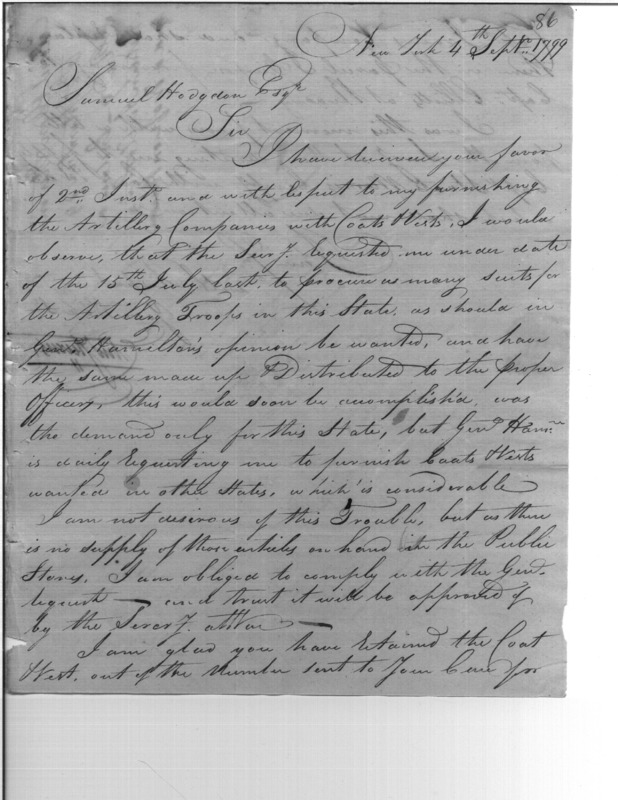 86
New York 4th Septr. 1799
Samuel Hodgdon Esqr
Sir
I have received your favor
of 2nd Inst. and with respect to my furnishing
the Artillery Companies with Coats Vests, I would
observe, that the Secry. requested me under date
of the 15th July last, to procure as many suits for
the Artillery Troops in this State, as should in
Genl. Hamilton's opinion be wanted, and have
the same made up & Distributed to the proper
Officers, this would soon be accomplish'd, was
the demand only for this State, but Genl. Ham:
is daily requesting me to furnish Coats Vests
wanted in other States, which is considerable
I am not desirous of this Trouble, but as there
is no supply of those articles on hand in the Public
Stores, I am obliged to comply with the Genl.
request — and trust it will be approved of
by the Secry. at War —
I am glad you have retained the Coat
Vest, out of the Number sent to Your Care for